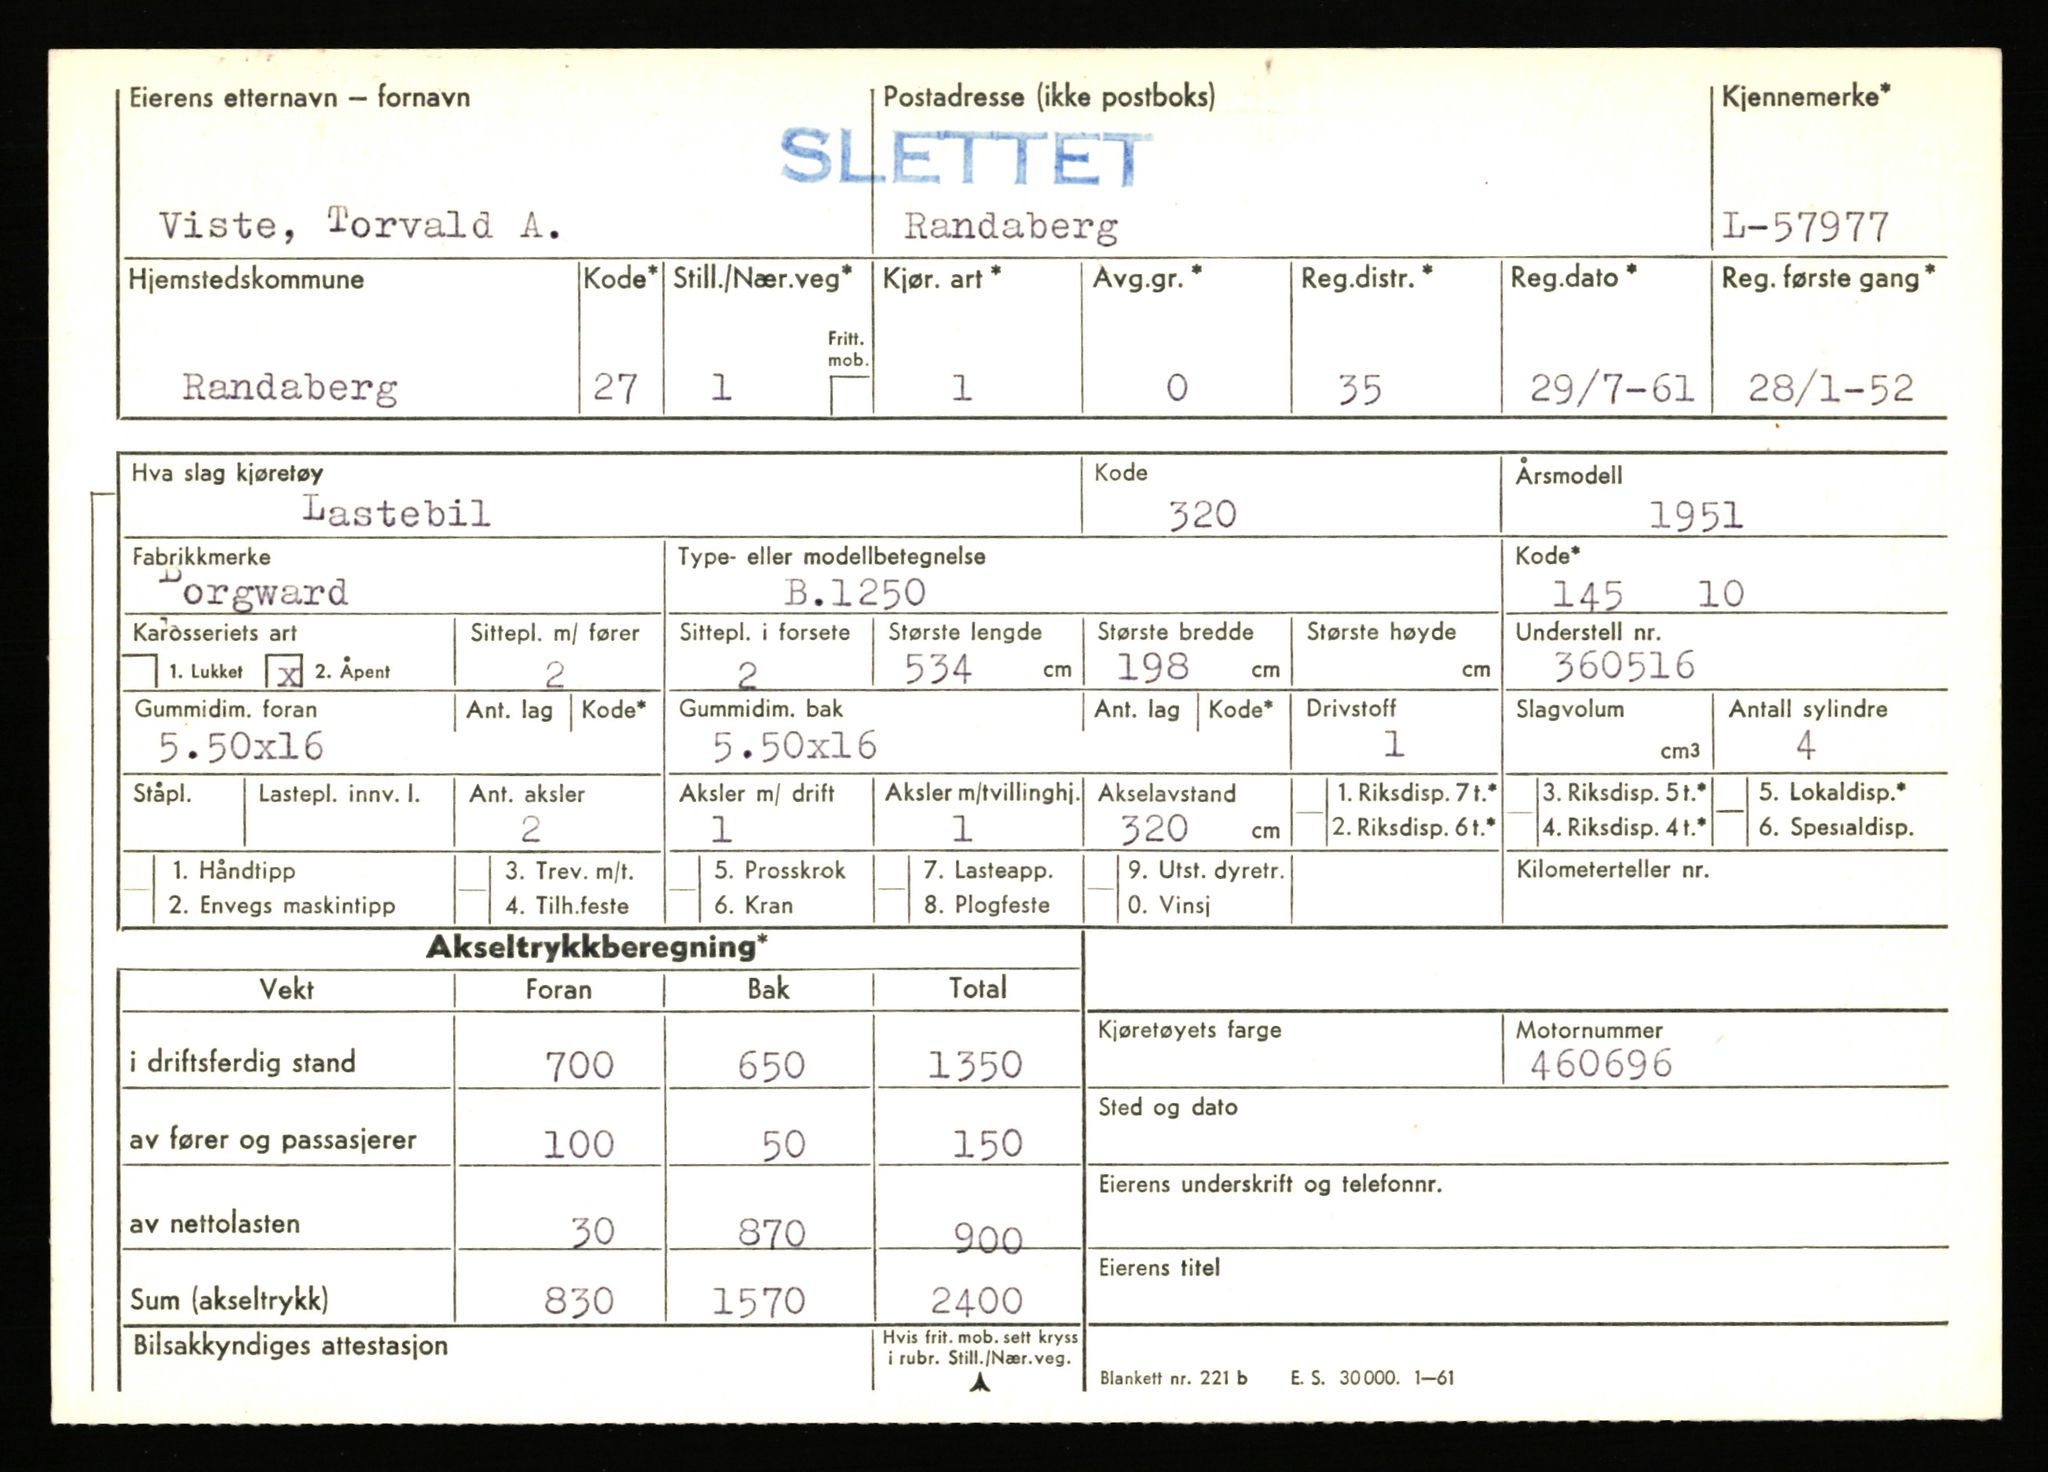 Eierens etternavn — fornavn Postadresse (ikke postboks) Kjennemerke*
SLETTET
Viste, Torvald A. Randaberg L-57977
Hjemstedskommune Kode* Still./Nær.veg* Kjør. art* Avg.gr.* Reg.distr.* Reg.dato* Reg. første gang*
Fritt.
mob.
Randaberg 27 1 1 0 35 29/7-61 28/1-52
Hva slag kjøretøy Kode Årsmodell
Lastebil 320 1951
Fabrikkmerke Type- eller modellbetegnelse Kode*
Borgward B.1250 145 10
Karosseriets art Sittepl. m/ fører Sittepl. i forsete Største lengde Største bredde Største høyde Understell nr.
1. Lukket x 2. Åpent 2 2 534 cm 198 cm cm 360516
Gummidim. foran Ant. lag Kode* Gummidim. bak Ant. lag Kode* Drivstoff Slagvolum Antall sylindre
5.50x16 5.50x16 1 cm3 4
Ståpl. Lastepl. innv. l. Ant. aksler Aksler m/ drift Aksler m/tvillinghj. Akselavstand 1. Riksdisp. 7 t.* 3. Riksdisp. 5 t.* 5. Lokaldisp.*
2 1 1 320 cm 2. Riksdisp. 6 t.* 4. Riksdisp. 4 t.* 6. Spesialdisp.
1. Håndtipp 3. Trev. m/t. 5. Prosskrok 7. Lasteapp. 9. Utst. dyretr. Kilometerteller nr.
2. Envegs maskintipp 4. Tilh.feste 6. Kran 8. Plogfeste 0. Vinsj
Akseltrykkberegning*
Vekt Foran Bak Total
Kjøretøyets farge Motornummer
i driftsferdig stand 700 650 1350 460696
Sted og dato
av fører og passasjerer 100 50 150
Eierens underskrift og telefonnr.
av nettolasten 30 870 900
Eierens titel
Sum (akseltrykk) 830 1570 2400
Bilsakkyndiges attestasjon Hvis frit. mob. sett kryss
i rubr. Still./Nær.veg.
Blankett nr. 221 b E. S. 30 000. 1—61